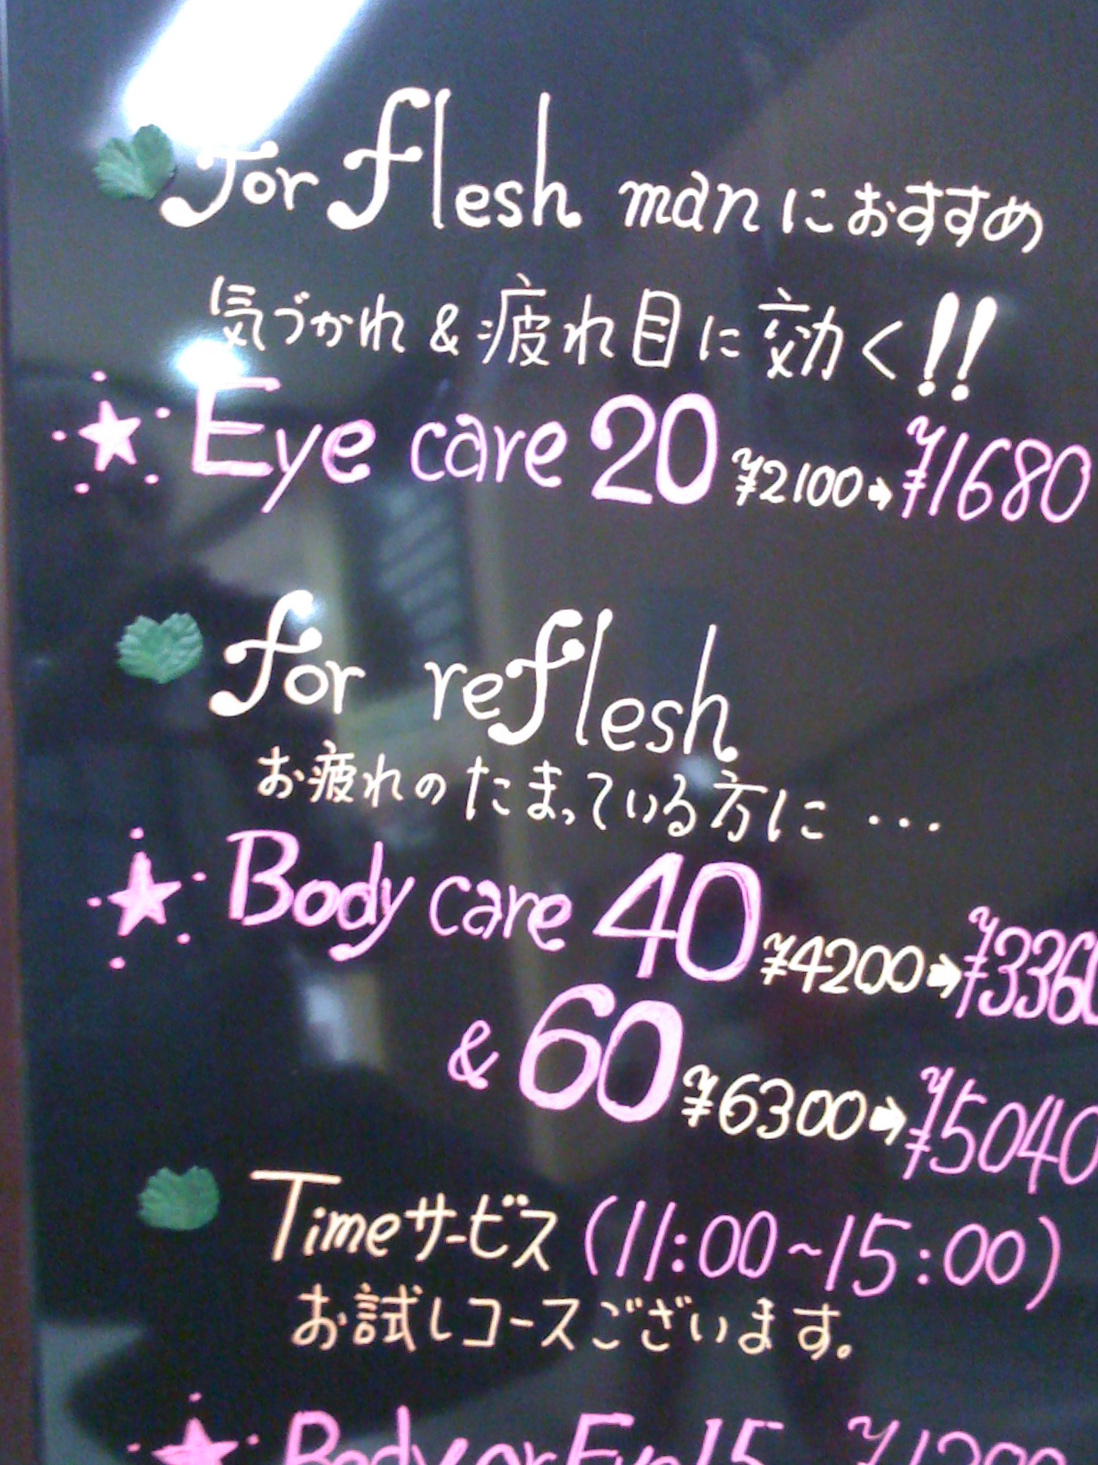 for flesh man におすすめ
気づかれ & 疲れ目に効く!!
Eye care 20 ¥2100→¥1680
for reflesh
お疲れのたまっている方に …
Body care 40 ¥4200→¥3360
& 60 ¥6300→¥5040
Timeサービス (11:00~15:00)
お試しコースございます。
Body or Eye 15